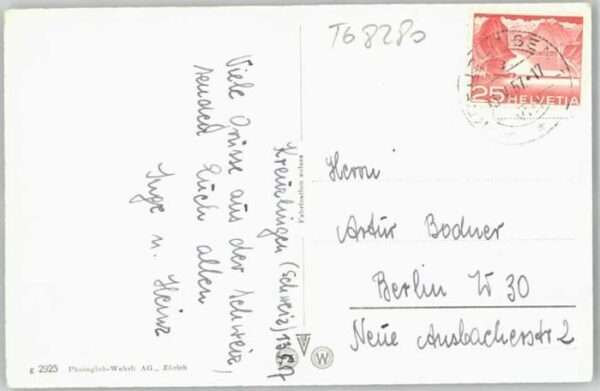 T6828o
25 HELVETIA
Kreuzlingen (Schweiz) 13.5.57
Viele Grüsse aus der Schweiz,
sendet Euch allen
Inge u. Heinz
Fabrication suisse
Herrn
Artur Bodner
Berlin W 30
Neue Ansbacherstr 2
W
g 2925 Photoglob-Wehrli AG., Zürich